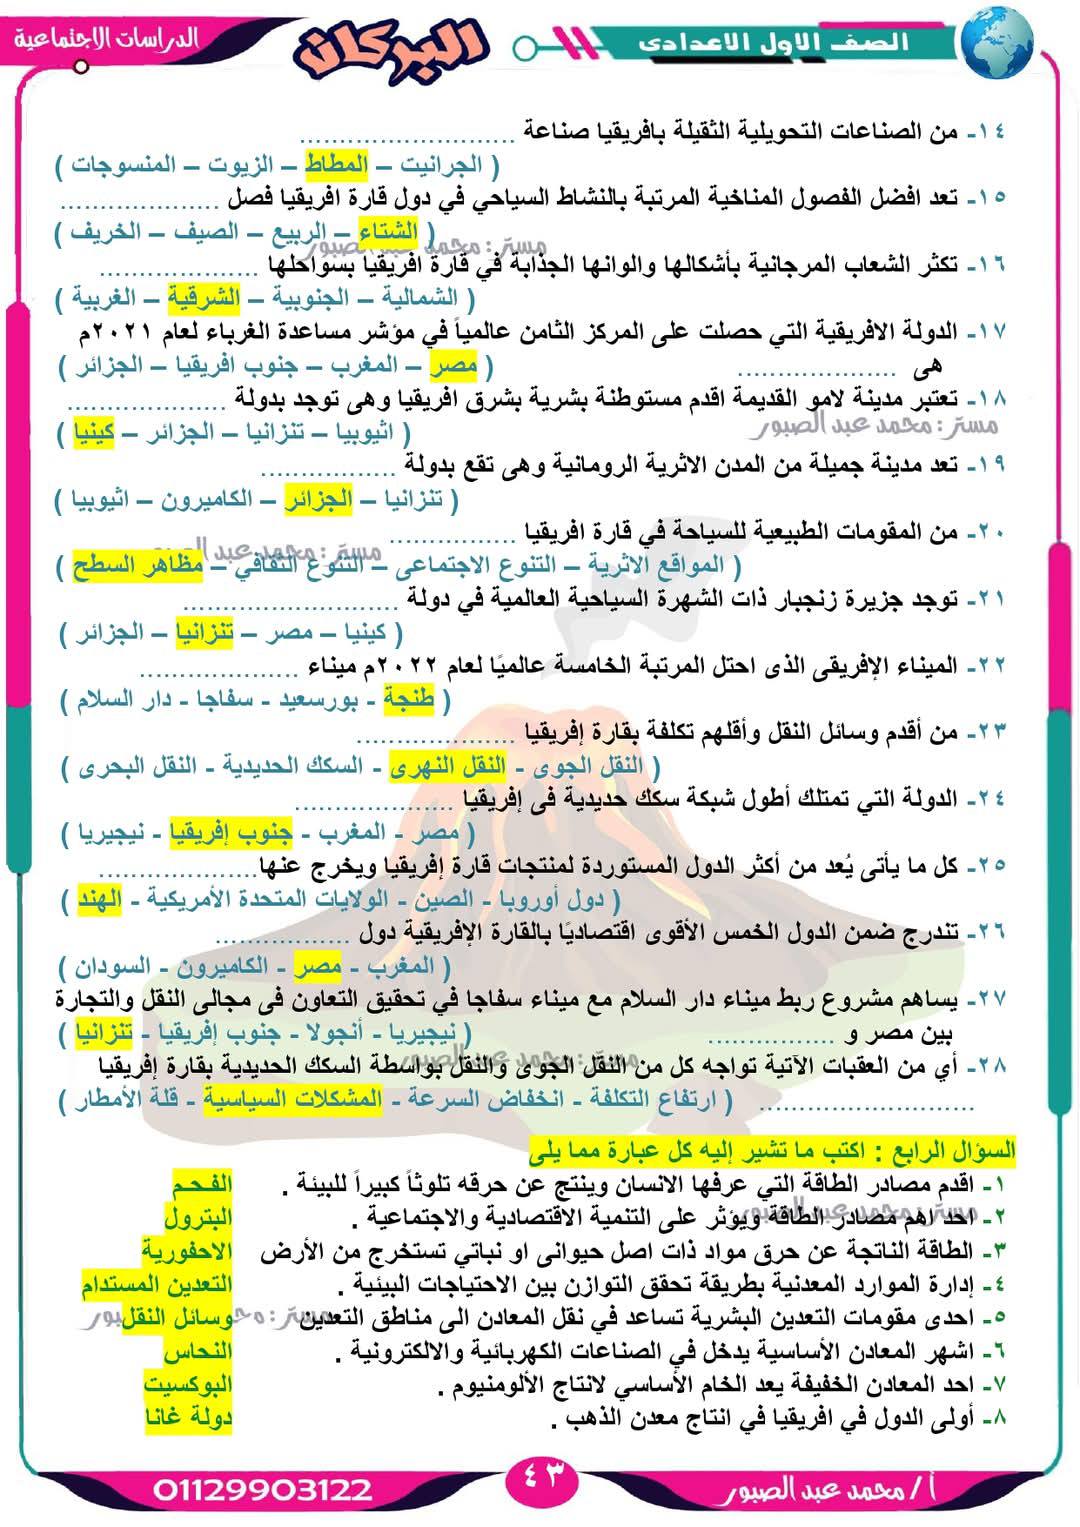 الصف الاول الاعدادى
البركان
الدراسات الاجتماعية
١٤- من الصناعات التحويلية الثقيلة بافريقيا صناعة ...........................
( الجرانيت – المطاط – الزيوت – المنسوجات )
١٥- تعد افضل الفصول المناخية المرتبة بالنشاط السياحي في دول قارة افريقيا فصل ....................
( الشتاء – الربيع – الصيف – الخريف )
مستر : محمد عبد الصبور
١٦- تكثر الشعاب المرجانية بأشكالها والوانها الجذابة في قارة افريقيا بسواحلها ....................
( الشمالية – الجنوبية – الشرقية – الغربية )
١٧- الدولة الافريقية التي حصلت على المركز الثامن عالمياً في مؤشر مساعدة الغرباء لعام ٢٠٢١م
هى .................... ( مصر – المغرب – جنوب افريقيا – الجزائر )
١٨- تعتبر مدينة لامو القديمة اقدم مستوطنة بشرية بشرق افريقيا وهى توجد بدولة ....................
مستر : محمد عبد الصبور
( اثيوبيا – تنزانيا – الجزائر – كينيا )
١٩- تعد مدينة جميلة من المدن الاثرية الرومانية وهى تقع بدولة .................
( تنزانيا – الجزائر – الكاميرون – اثيوبيا )
٢٠- من المقومات الطبيعية للسياحة في قارة افريقيا ................
مستر : محمد عبد الصبور
( المواقع الاثرية – التنوع الاجتماعى – التنوع الثقافي – مظاهر السطح )
٢١- توجد جزيرة زنجبار ذات الشهرة السياحية العالمية في دولة ...........................
( كينيا – مصر – تنزانيا – الجزائر )
٢٢- الميناء الإفريقى الذى احتل المرتبة الخامسة عالميًا لعام ٢٠٢٢م ميناء ....................
( طنجة - بورسعيد - سفاجا - دار السلام )
٢٣- من أقدم وسائل النقل وأقلهم تكلفة بقارة إفريقيا ....................
( النقل الجوى - النقل النهرى - السكك الحديدية - النقل البحرى )
٢٤- الدولة التي تمتلك أطول شبكة سكك حديدية فى إفريقيا ....................
( مصر - المغرب - جنوب إفريقيا - نيجيريا )
٢٥- كل ما يأتى يُعد من أكثر الدول المستوردة لمنتجات قارة إفريقيا ويخرج عنها....................
( دول أوروبا - الصين - الولايات المتحدة الأمريكية - الهند )
٢٦- تندرج ضمن الدول الخمس الأقوى اقتصاديًا بالقارة الإفريقية دول .................
( المغرب - مصر - الكاميرون - السودان )
٢٧- يساهم مشروع ربط ميناء دار السلام مع ميناء سفاجا في تحقيق التعاون فى مجالى النقل والتجارة
بين مصر و ................ ( نيجيريا - أنجولا - جنوب إفريقيا - تنزانيا )
مستر : محمد عبد الصبور
٢٨- أي من العقبات الآتية تواجه كل من النقل الجوى والنقل بواسطة السكك الحديدية بقارة إفريقيا
........................... ( ارتفاع التكلفة - انخفاض السرعة - المشكلات السياسية - قلة الأمطار )
السؤال الرابع : اكتب ما تشير إليه كل عبارة مما يلى
١- اقدم مصادر الطاقة التي عرفها الانسان وينتج عن حرقه تلوثاً كبيراً للبيئة . الفحم
مستر : محمد عبد الصبور
٢- احد اهم مصادر الطاقة ويؤثر على التنمية الاقتصادية والاجتماعية . البترول
٣- الطاقة الناتجة عن حرق مواد ذات اصل حيوانى او نباتي تستخرج من الأرض الاحفورية
٤- إدارة الموارد المعدنية بطريقة تحقق التوازن بين الاحتياجات البيئية . التعدين المستدام
٥- احدى مقومات التعدين البشرية تساعد في نقل المعادن الى مناطق التعدين وسائل النقل
٦- اشهر المعادن الأساسية يدخل في الصناعات الكهربائية والالكترونية . النحاس
٧- احد المعادن الخفيفة يعد الخام الأساسي لانتاج الألومنيوم . البوكسيت
٨- أولى الدول في افريقيا في انتاج معدن الذهب . دولة غانا
أ/ محمد عبد الصبور
٤٣
01129903122